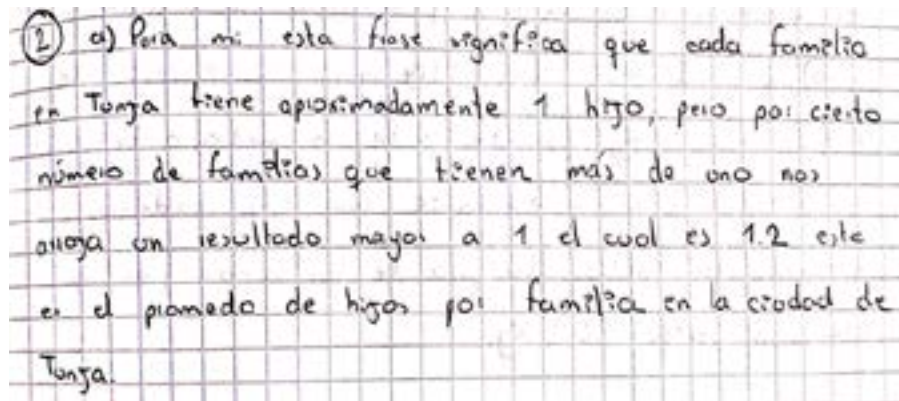 2) a) Para mi esta frase significa que cada familia
en Tunja tiene aproximadamente 1 hijo, pero por cierto
número de familias que tienen más de uno nos
arroja un resultado mayor a 1 el cual es 1.2 este
es el promedo de hijos por familia en la ciudad de
Tunja.